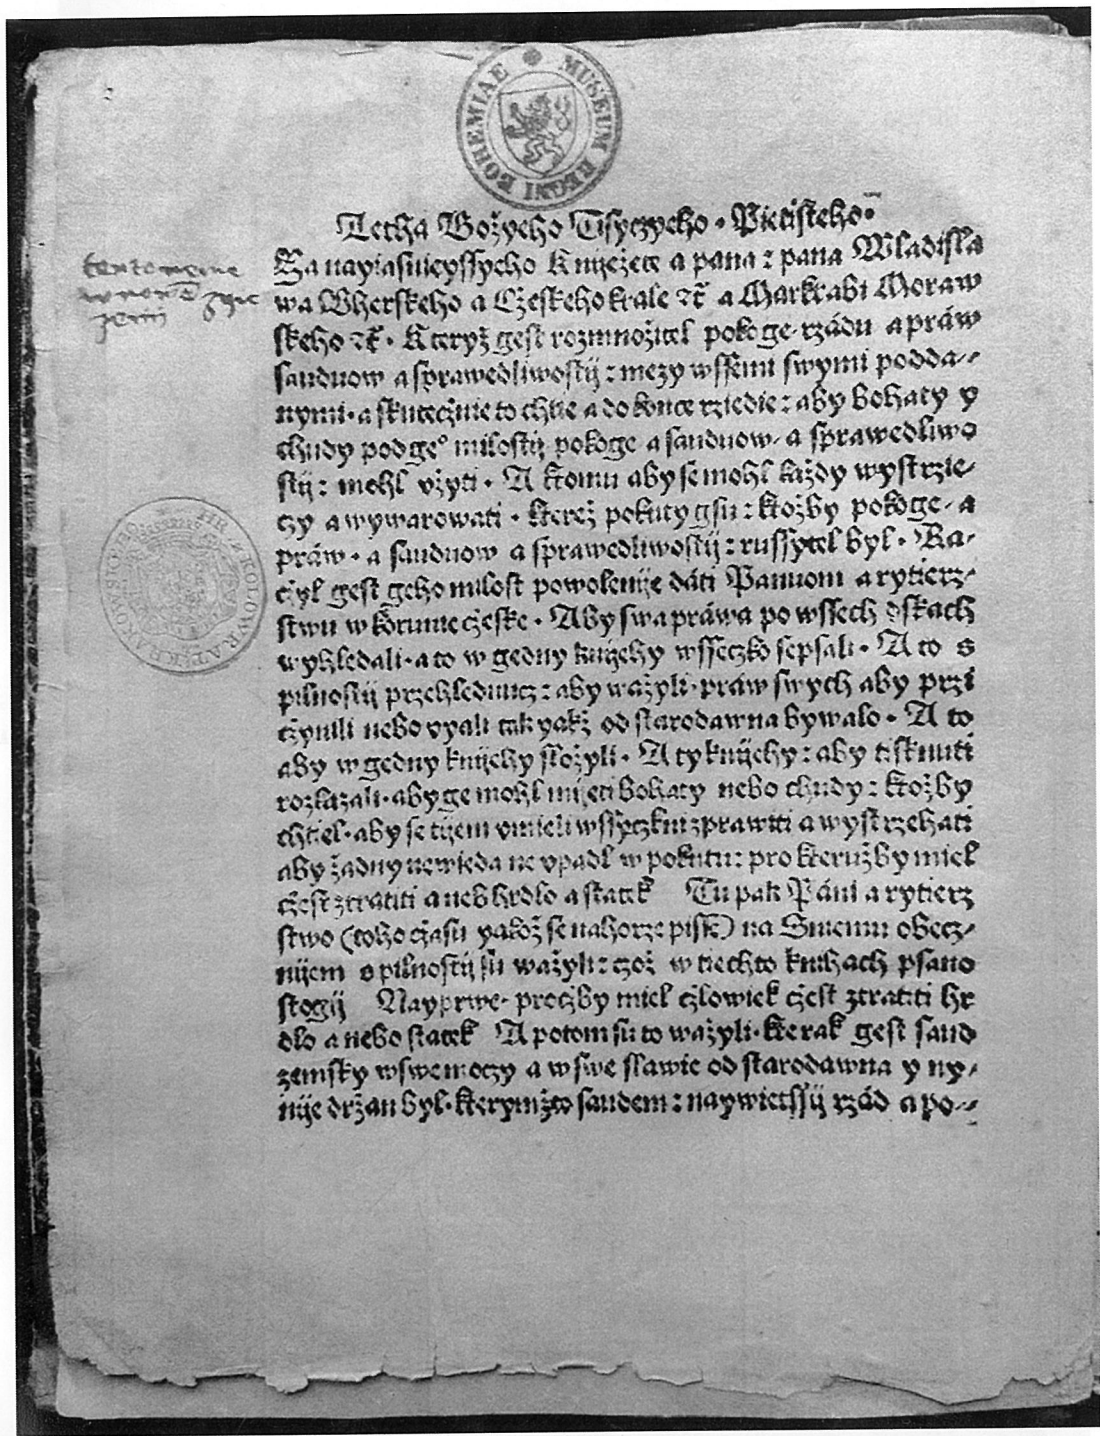 MUSEUM REGNI BOHEMIAE
Letha Božyeho Tisyczyeho · Pietisteho ·
Za nayiasnieyssyeho Knyežete a pana : pana Wladisla
wa Vherskeho a Cžeskeho krale ꝛč a Markrabi Moraw
skeho ꝛč · Kteryž gest rozmnožitel pokoge rzádu a práw
sauduow a sprawedliwostij : mezy wssemi swymi podda⸗
nymi · a skutecžnie to chtie a do konce rziedie : aby bohaty y
chudy pod geº milostij pokoge a sauduow · a sprawedliwo
stij : mohl vžyti · A ktomu aby se mohl každy wystrzie⸗
czy a wywarowati · kterež pokuty gsu : ktožby pokoge · a
práw · a sauduow a sprawedliwostij : russytel byl · Ra⸗
cžyl gest geho milost powolenije dáti Panuom a rytierz⸗
stwu w korune cžeske · Aby swa práwa po wssech dskach
wyhledali · a to w gedny knijehy wsseczko sepsali · A to s
pilnostij przehlednucz : aby wažyli · práw swych aby przi
cžynili nebo vyali tak yakž od starodawna bywalo · A to
aby w gedny knijehy složyli · A ty knijehy : aby tisknuti
rozkazali · aby ge mohl mijeti bohaty nebo chudy : ktožby
chtiel · aby se tijem vmieli wssyczkni zprawiti a wystrzehati
aby žadny newieda ne vpadl w pokutu : pro kteružby miel
cžest ztratiti a neb hrdlo a statek Tu pak Páni a rytierz
stwo (toho cžasu yakož se nahorze pisse) na Sniemu obecz⸗
nijem s pilnostij su wažyli : czož w tiechto knihach psano
stogij Nayprwe · proczby miel cžlowiek cžest ztratiti hr
dlo a nebo statek A potom su to wažyli · kterak gest saud
zemsky w swe moczy a w swe slawie od starodawna y ny⸗
nije držan byl · kterymžto saudem : naywietssij rzád a po⸗